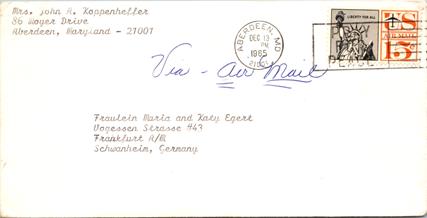 Mrs. John A. Koppenheffer
86 Moyer Drive
Aberdeen, Maryland - 21001
ABERDEEN, MD
DEC 13
PM
1965
21001
PRAY
FOR
PEACE
LIBERTY FOR ALL
US
AIR MAIL
15¢
Via - Air Mail
Fraulein Maria and Katy Egert
Vogessen Strasse #43
Frankfurt A/M
Schwanheim, Germany